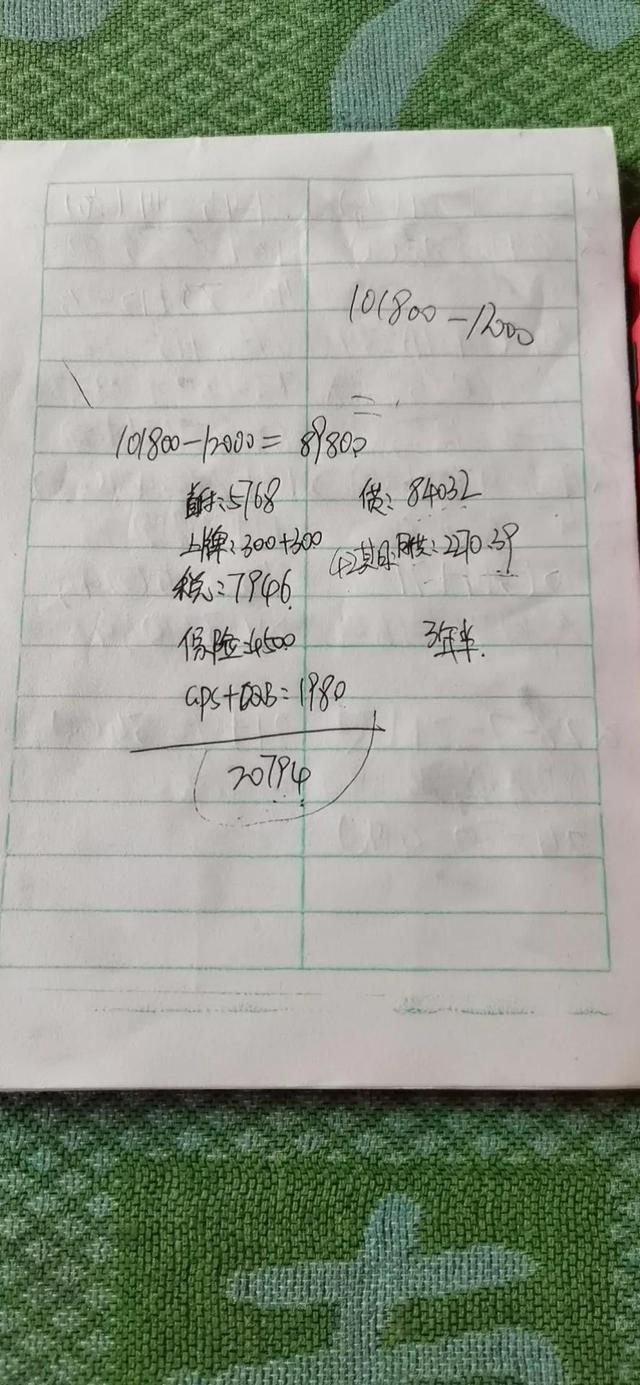 101800-12000
=
101800-12000=89800
首付:5768 贷:84032
上牌:300+300 42期:月供:2270.39
税:7946
保险:4500 3年半.
GPS+DQB:1980
20794